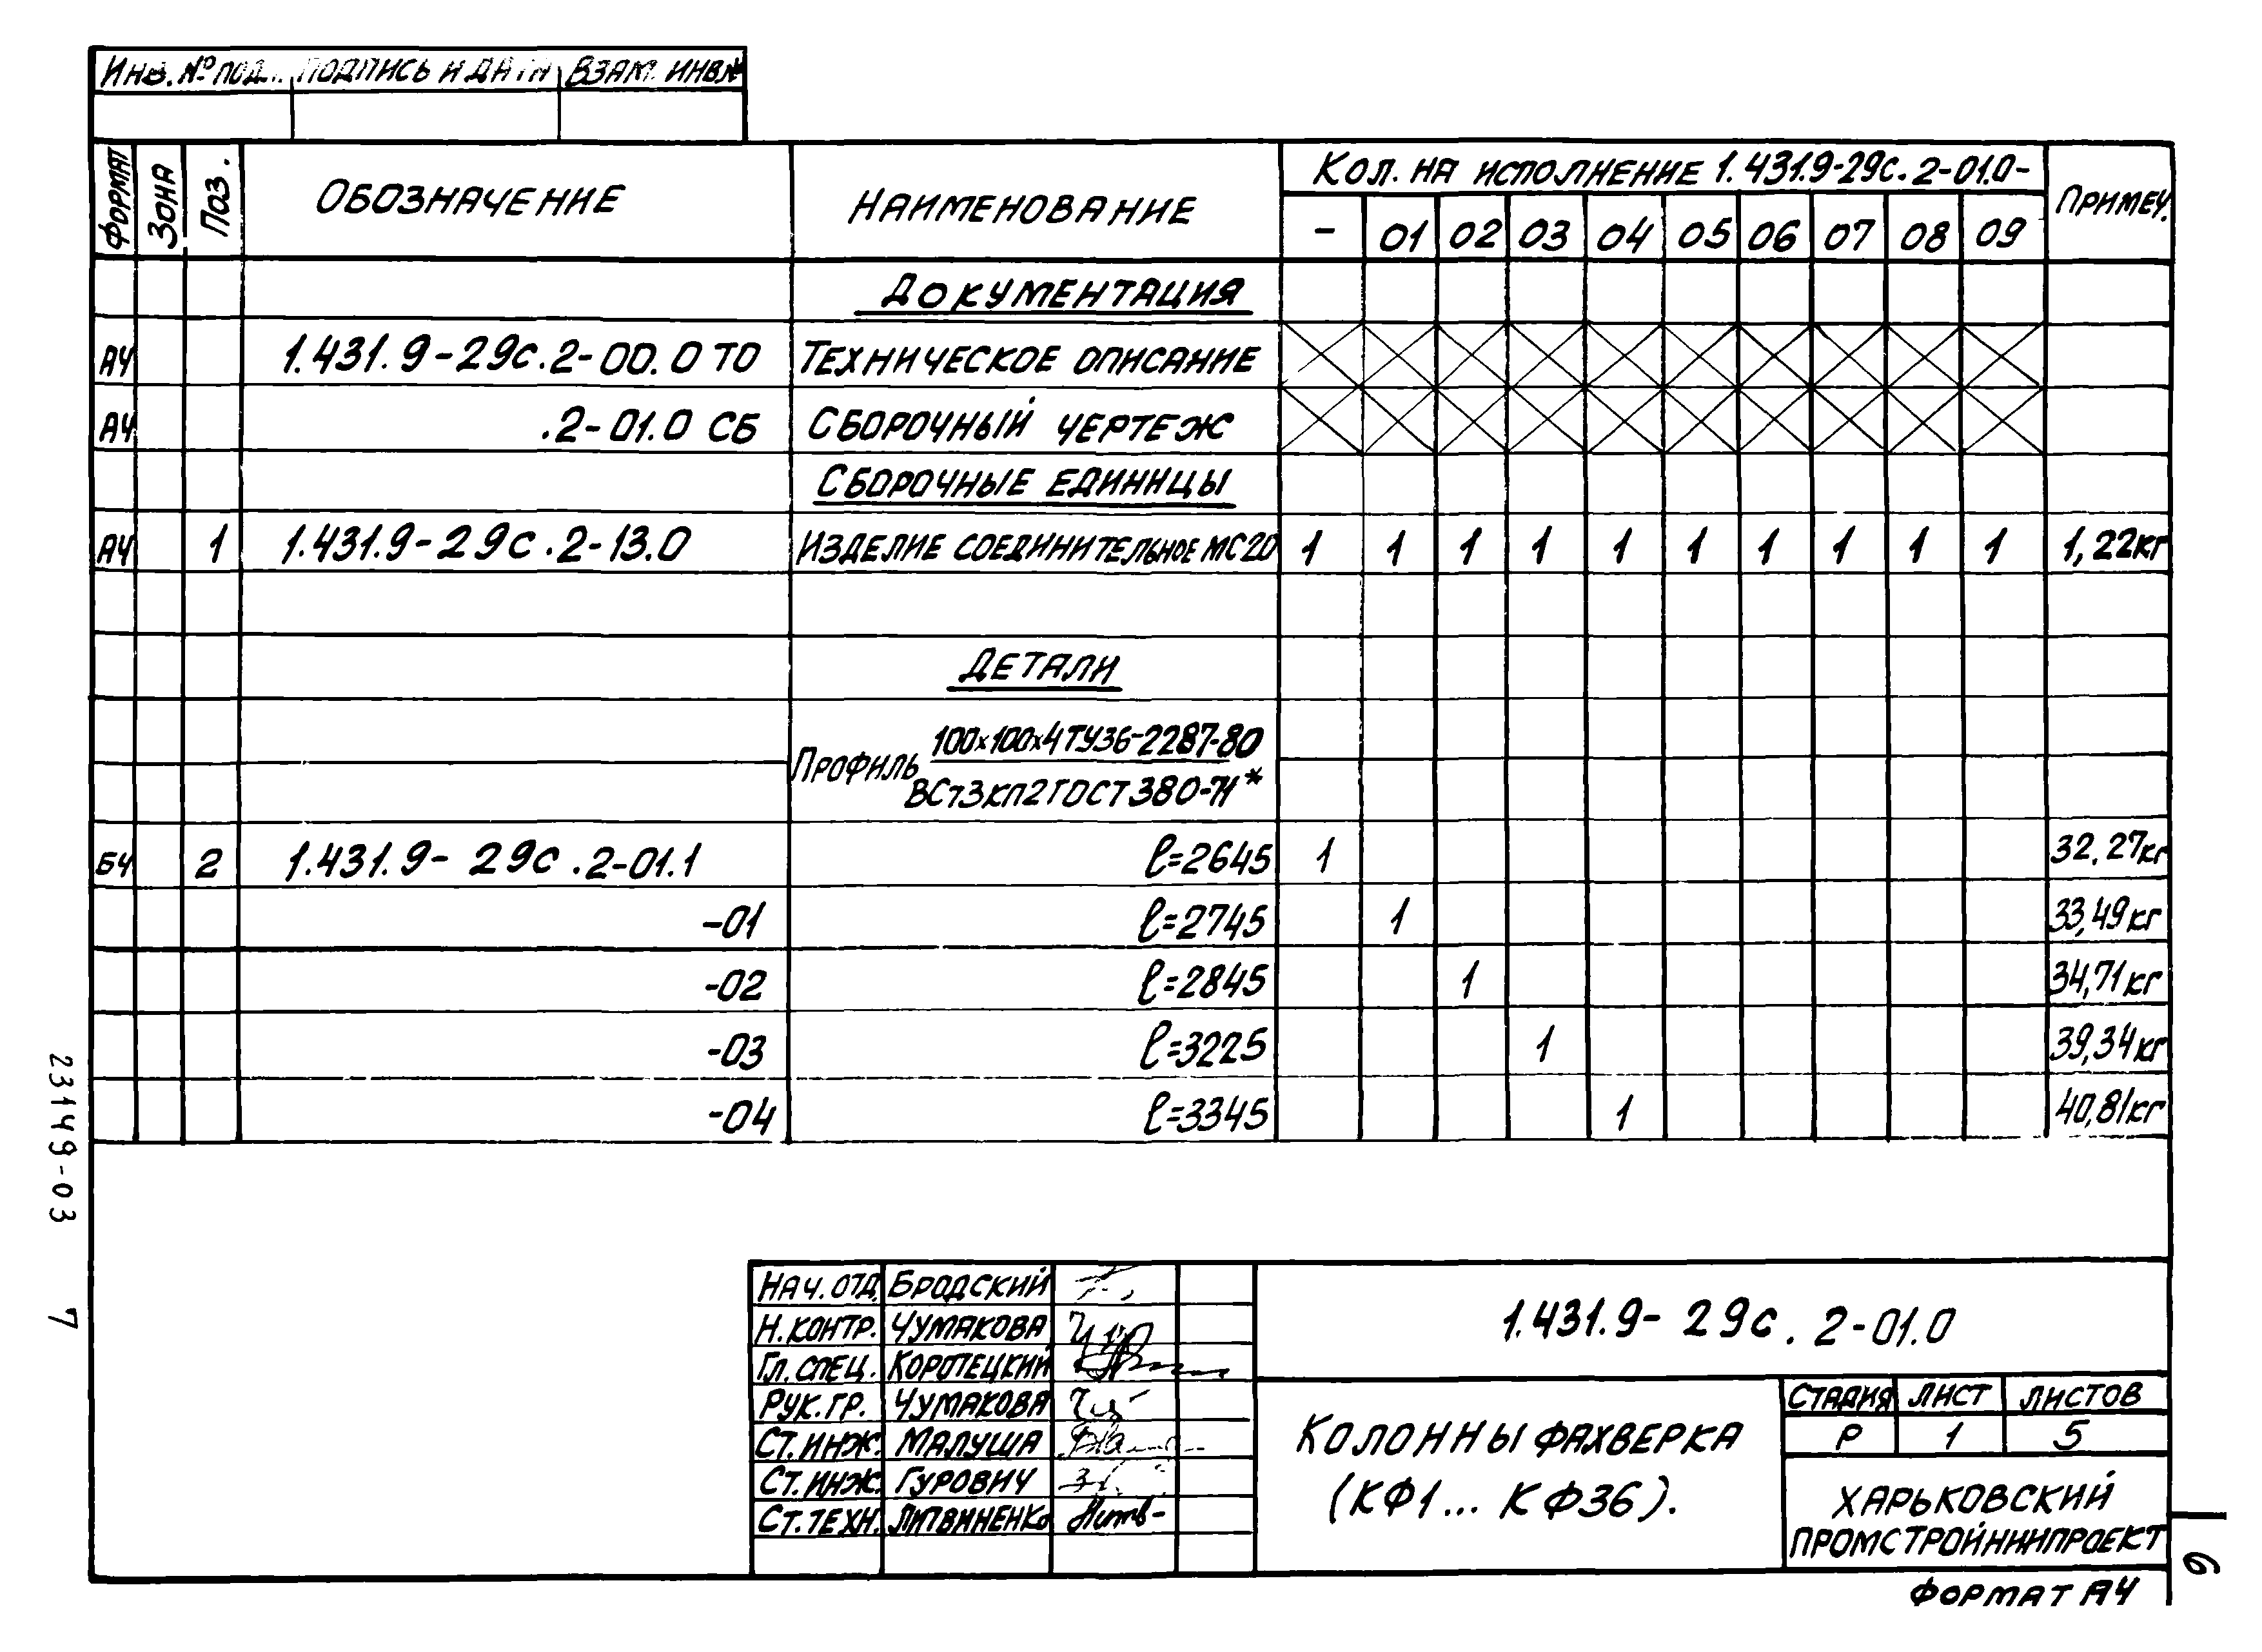 Инв. № под. Подпись и дата Взам. инв.№
Формат Зона Поз. Обозначение Наименование Кол. на исполнение 1.431.9-29с.2-01.0- Примеч.
- 01 02 03 04 05 06 07 08 09
Документация
А4 1.431.9-29с.2-00.0 ТО Техническое описание
А4 .2-01.0 СБ Сборочный чертеж
Сборочные единицы
А4 1 1.431.9-29с.2-13.0 Изделие соединительное МС20 1 1 1 1 1 1 1 1 1 1 1,22кг
Детали
Профиль 100х100х4 ТУ36-2287-80
ВСт3кп2 ГОСТ 380-71*
БЧ 2 1.431.9-29с.2-01.1 ℓ=2645 1 32,27кг
-01 ℓ=2745 1 33,49кг
-02 ℓ=2845 1 34,71кг
-03 ℓ=3225 1 39,34кг
-04 ℓ=3345 1 40,81кг
23149-03 7
Нач. отд. Бродский
Н. контр. Чумакова
Гл. спец. Коротецкий
Рук. гр. Чумакова
Ст. инж. Малуша
Ст. инж. Гурович
Ст. техн. Литвиненко
1.431.9-29с.2-01.0
Колонны фахверка
(КФ1... КФ36).
Стадия Лист Листов
Р 1 5
Харьковский
Промстройниипроект
Формат А4
6